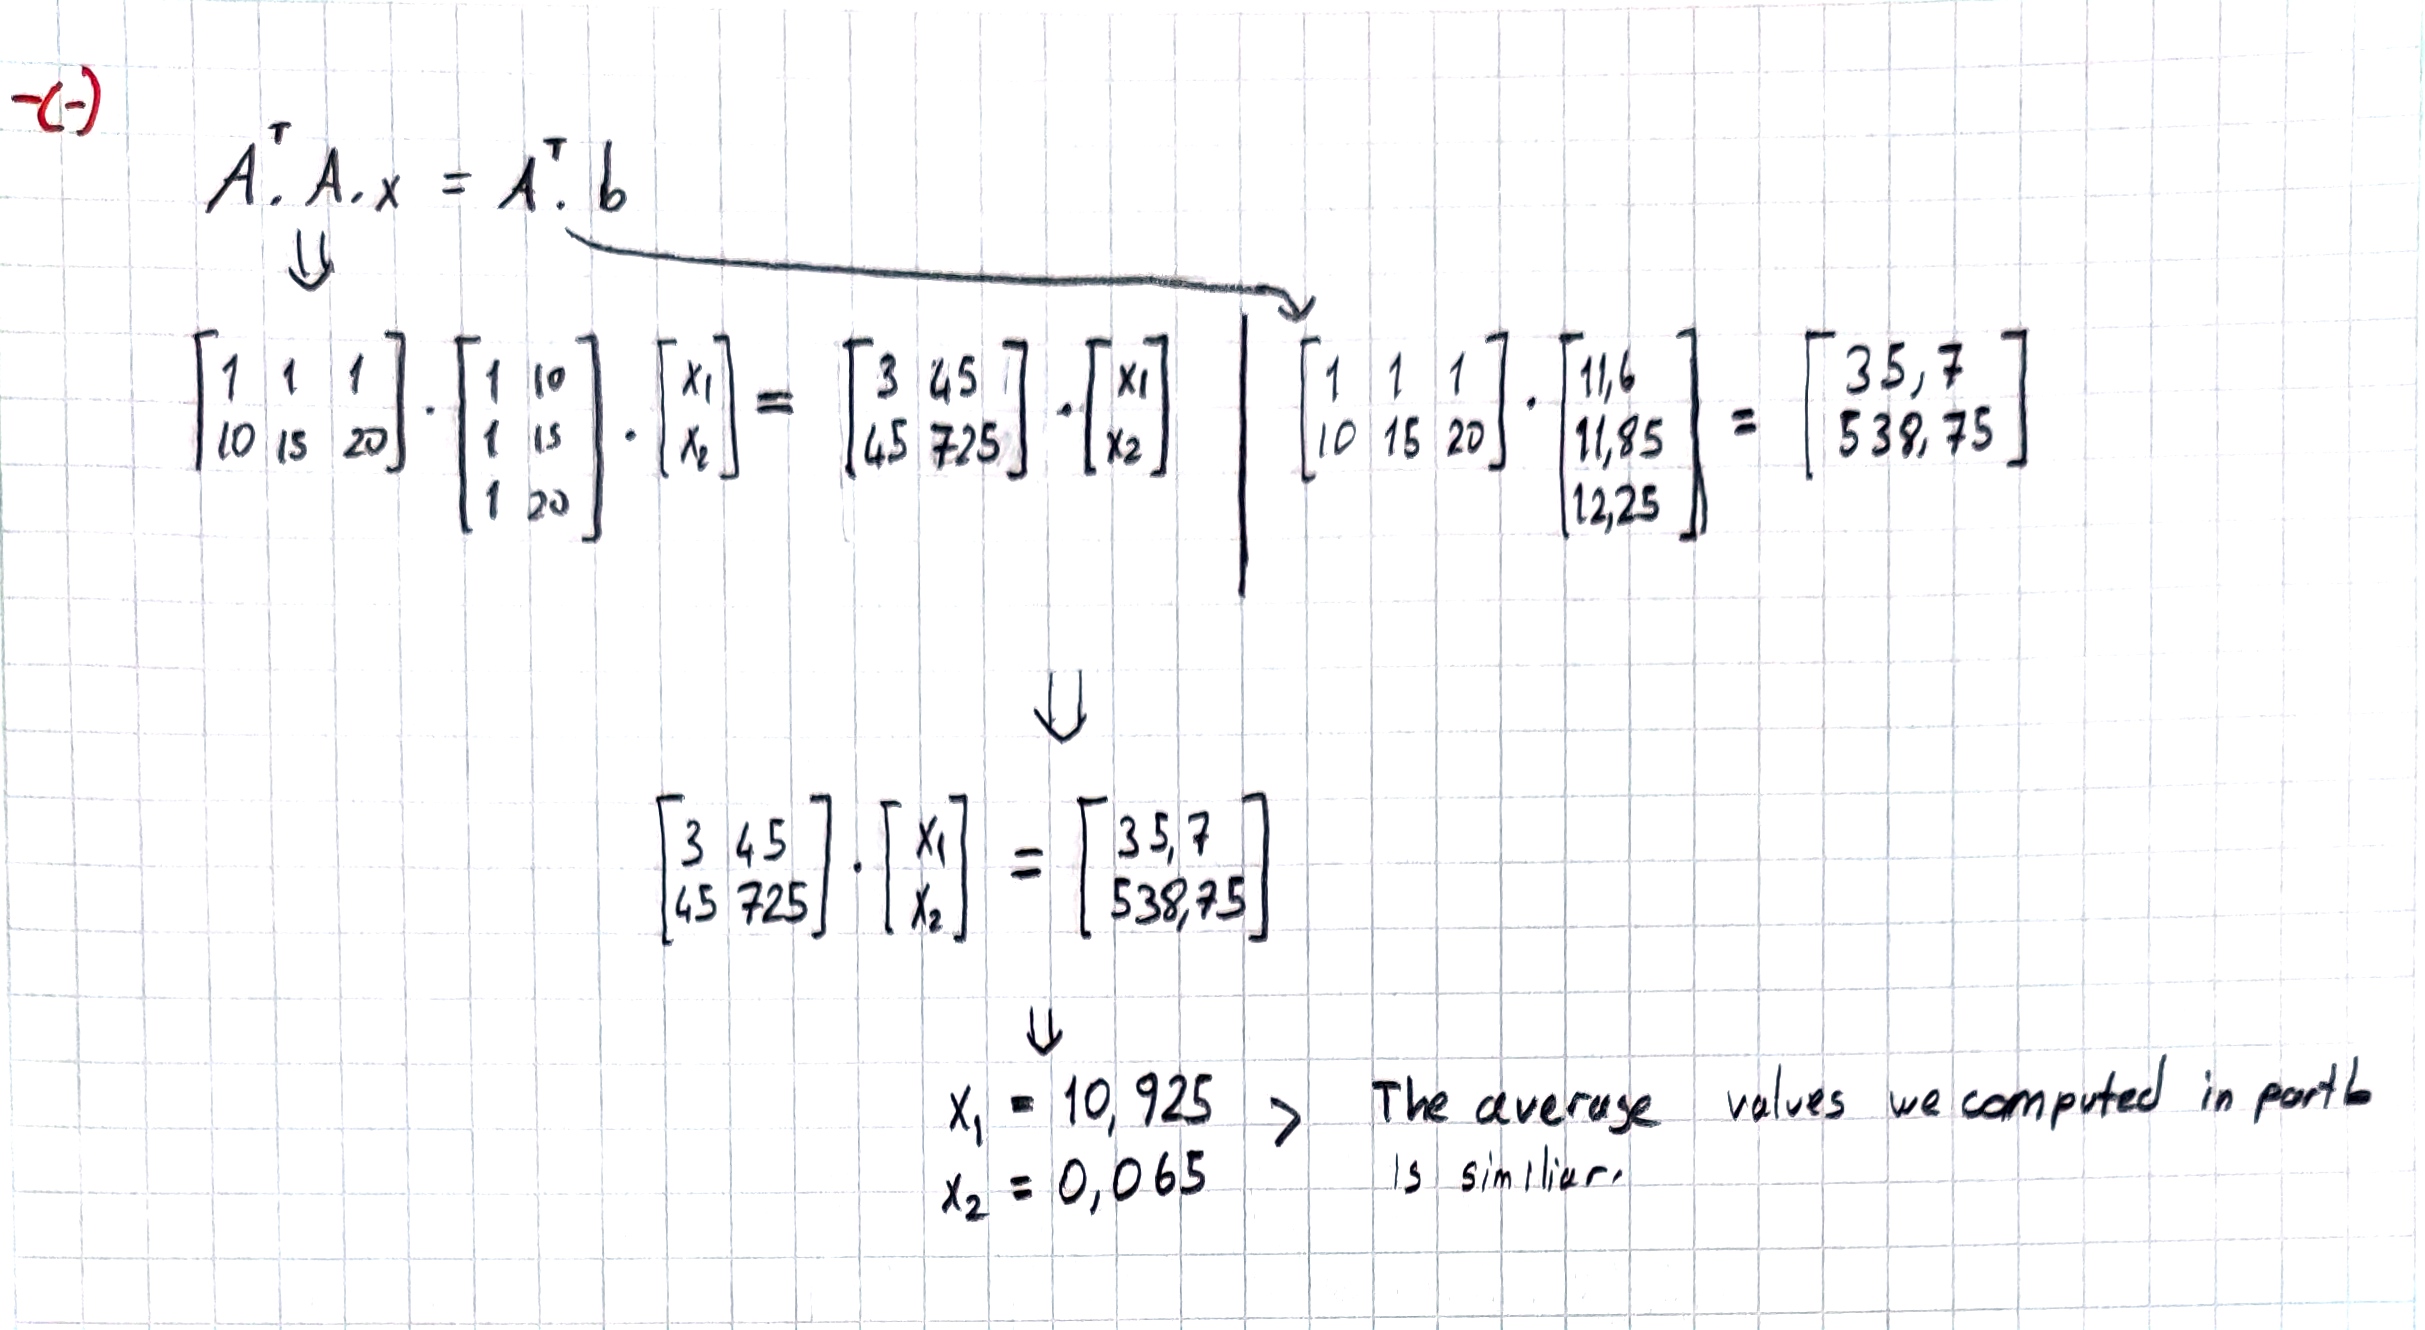 -(-)
Aᵀ. A. x = Aᵀ. b
⇓
[1 1 1; 10 15 20] · [1 10; 1 15; 1 20] · [x₁; x₂] = [3 45; 45 725] · [x₁; x₂] | [1 1 1; 10 15 20] · [11,6; 11,85; 12,25] = [35,7; 538,75]
⇓
[3 45; 45 725] · [x₁; x₂] = [35,7; 538,75]
⇓
x₁ = 10,925 > The average values we computed in part b
x₂ = 0,065 is similiar.